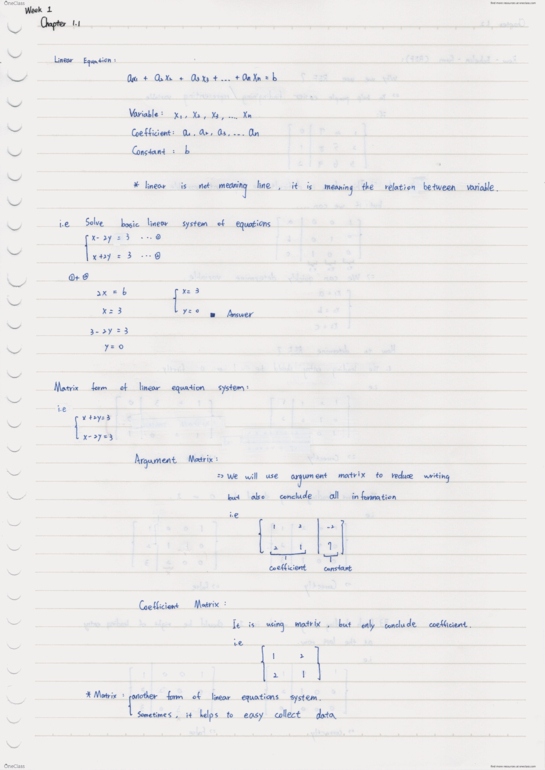 OneClass
Week 1
Chapter 1.1
Linear Equation:
ax₁ + a₂x₂ + a₃x₃ + ... + anxn = b
Variable: x₁, x₂, x₃, ... xn
Coefficient: a₁, a₂, a₃, ... an
Constant : b
* linear is not meaning line, it is meaning the relation between variable.
i.e Solve basic linear system of equations
x - 2y = 3 ... ①
x + 2y = 3 ... ②
①+②
2x = 6
x = 3
3 - 2y = 3
y = 0
x = 3
y = 0 Answer
Matrix form of linear equation system:
i.e
x + 2y = 3
x - 2y = 3
Argument Matrix:
=> We will use argument matrix to reduce writing
but also conclude all information
i.e
1 2 | -2
2 1 | 7
coefficient constant
Coefficient Matrix:
It is using matrix, but only conclude coefficient.
i.e
1 2
2 1
* Matrix : another form of linear equations system.
Sometimes, it helps to easy collect data
OneClass